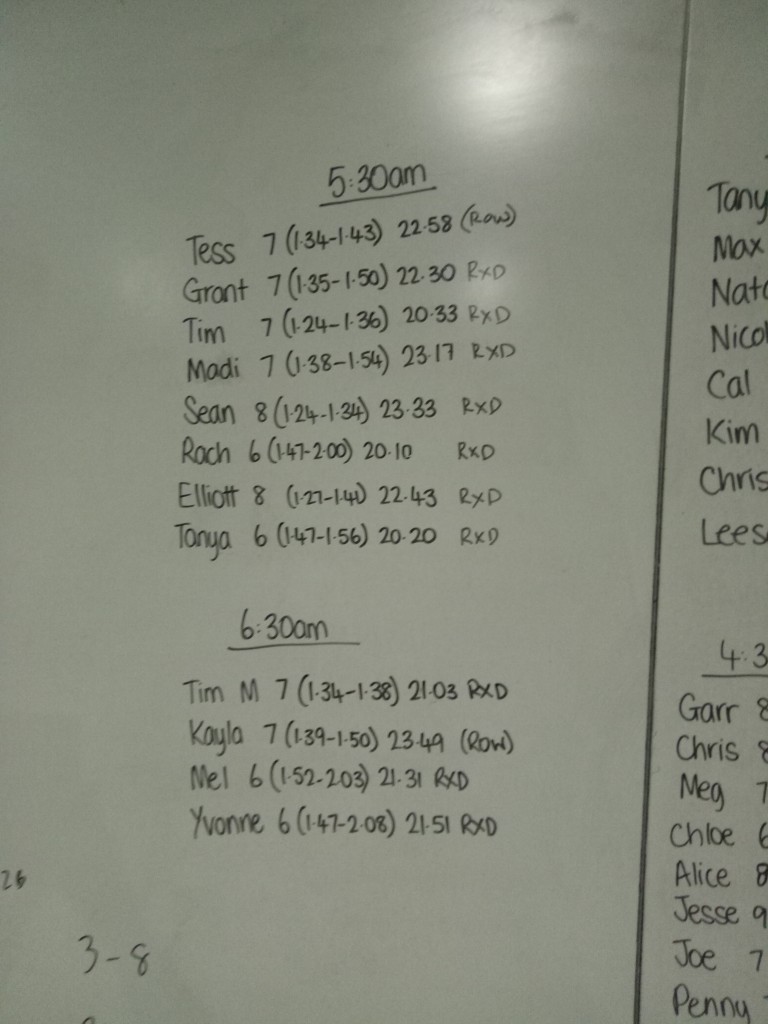 5:30am
Tess 7 (1.34-1.43) 22.58 (Row)
Grant 7 (1.35-1.50) 22.30 RxD
Tim 7 (1.24-1.36) 20.33 RxD
Madi 7 (1.38-1.54) 23.17 RxD
Sean 8 (1.24-1.34) 23.33 RxD
Rach 6 (1.47-2.00) 20.10 RxD
Elliott 8 (1.27-1.41) 22.43 RxD
Tanya 6 (1.47-1.56) 20.20 RxD
6:30am
Tim M 7 (1.34-1.38) 21.03 RXD
Kayla 7 (1.39-1.50) 23.49 (Row)
Mel 6 (1.52-2.03) 21.31 RXD
Yvonne 6 (1.47-2.08) 21.51 RXD
26
3-8
Tany
Max
Nata
Nicol
Cal
Kim
Chris
Lees
4:3
Garr 8
Chris 8
Meg 7
Chloe 6
Alice 8
Jesse 9
Joe 7
Penny